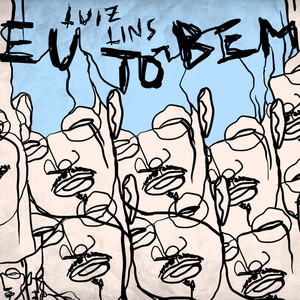 LUIZ
LINS
EU TÔ BEM